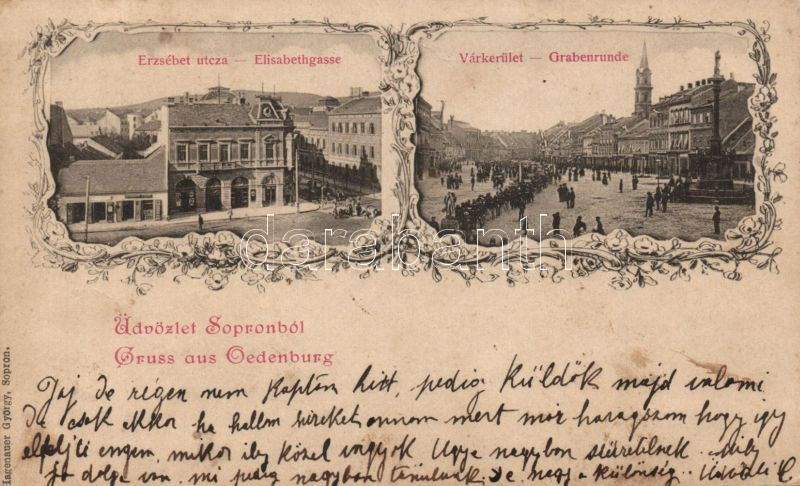 Erzsébet utcza — Elisabethgasse
Várkerület — Grabenrunde
darabanth
Üdvözlet Sopronból
Gruss aus Oedenburg
Hagenauer György, Sopron.
Jaj de régen nem kaptam hirt, pedig küldök majd valami
De csak akkor ha hallom híreket onnan mert már haragszom hogy így
engem, mikor ily közel vagyok Ugye nagyban szüretelnek. Mily
jó dolga van, mi pedig nagyban tanulunk. De nagy a külömbség..